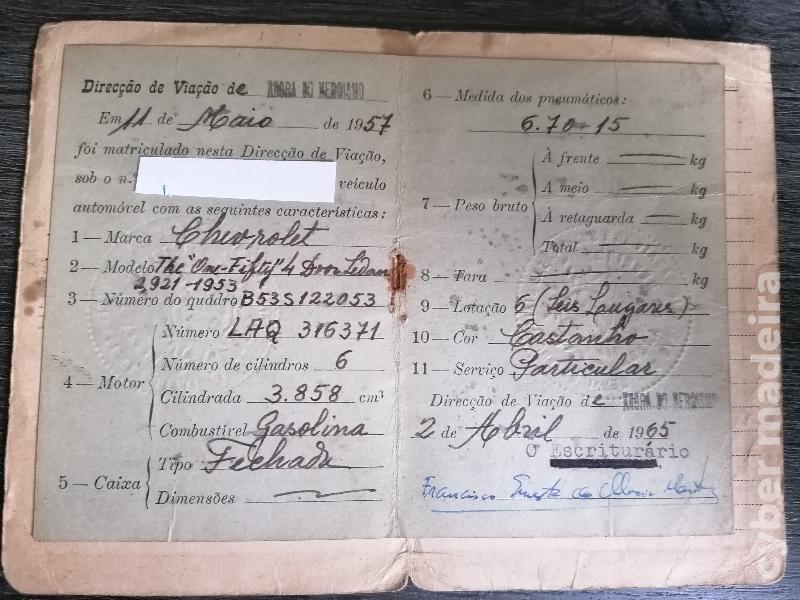 Direcção de Viação de ANGRA DO HEROISMO
Em 11 de Maio de 1957
foi matriculado nesta Direcção de Viação,
sob o n.º veículo
automóvel com as seguintes características:
1 — Marca Chevrolet
2 — Modelo The "One-Fifty" 4 Door Sedan
2921-1953
3 — Número do quadro B53S122053
4 — Motor
Número LAQ 316371
Número de cilindros 6
Cilindrada 3.858 cm³
Combustível Gasolina
5 — Caixa
Tipo Fechada
Dimensões
6 — Medida dos pneumáticos:
6.70-15
7 — Peso bruto
À frente kg
A meio kg
À retaguarda kg
Total kg
8 — Tara kg
9 — Lotação 6 (Seis Lugares)
10 — Cor Castanho
11 — Serviço Particular
Direcção de Viação de ANGRA DO HEROISMO
2 de Abril de 1965
O Escriturário
Francisco
cyber madeira